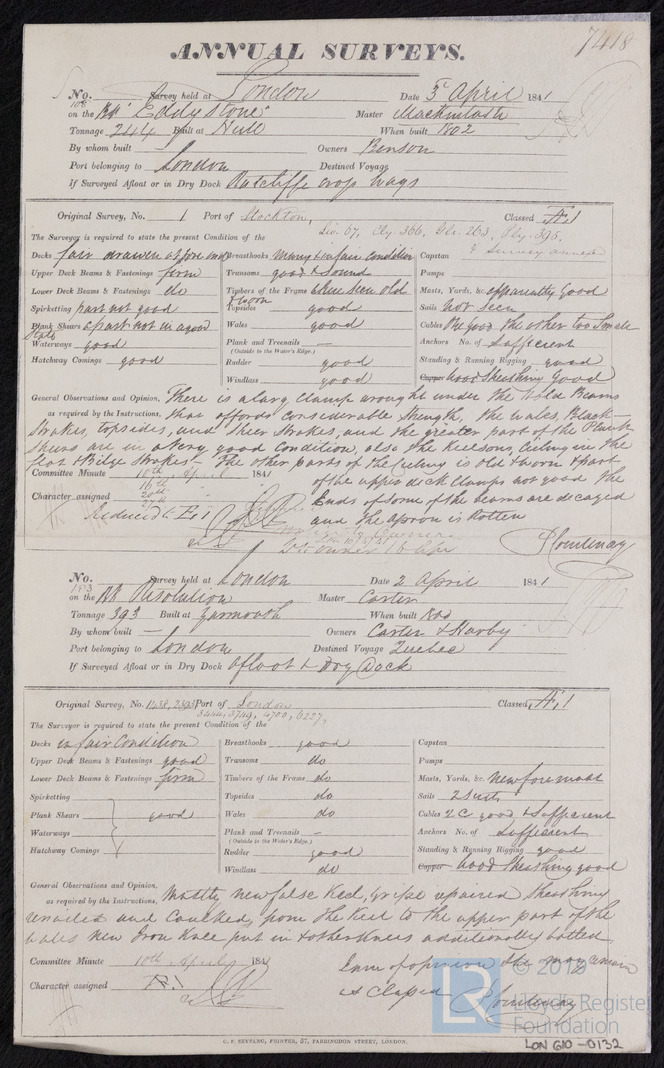 7418
ANNUAL SURVEYS.
No. 108 Survey held at London Date 3 April 1841
on the Bk "Eddystone" Master Mackintosh
Tonnage 244 Built at Hull When built 1802
By whom built — Owners Benson
Port belonging to London Destined Voyage
If Surveyed Afloat or in Dry Dock Ratcliffe crop ways
Original Survey, No. 1 Port of Stockton, Classed Æ.1
Liv. 67, Cly. 366, 263, 395.
& Survey annexed
The Surveyor is required to state the present Condition of the
Decks fair drawen at fore end Breasthooks many & in fair condition Capstan
Upper Deck Beams & Fastenings firm Transoms good & Sound Pumps
Lower Deck Beams & Fastenings do Timbers of the Frame where seen old & worn Masts, Yards, &c. apparently Good
Spirketting part not good Topsides good Sails Not Seen
Plank Shears a part not in a good State Wales good Cables One good the other too Small
Waterways good Plank and Treenails — Anchors No. of Sufficient
(Outside to the Water's Edge.)
Hatchway Comings good Rudder good Standing & Running Rigging good
Windlass good Copper Wood Sheathing Good
General Observations and Opinion, There is a long clamp wrought under the hold Beams
as required by the Instructions, that affords considerable Strength, the wales, Black
Strakes, topsides, and Sheer Strakes, and the greater part of the Plank
Shears are in a very good Condition, also the Keelsons, Ceiling in the
flat & Bilge Strakes — The other parts of the Ceiling is old & worn & part
Committee Minute 10th April 1841 of the upper deck clamps not good the
16th
20th
Character assigned Ends of some of the beams are decayed
Reduced to E.1 and the apron is Rotten
P Courtenay
No. 153 Survey held at London Date 2 April 1841
on the Bk Resolution Master Carter
Tonnage 393 Built at Yarmouth When built
By whom built — Owners Carter & Harby
Port belonging to London Destined Voyage Quebec
If Surveyed Afloat or in Dry Dock Afloat & Dry Dock
Original Survey, No. 1438, 2393 Port of London Classed Æ.1
3444, 3749, 4700, 6227,
The Surveyor is required to state the present Condition of the
Decks in fair Condition Breasthooks good Capstan
Upper Deck Beams & Fastenings good Transoms do Pumps
Lower Deck Beams & Fastenings firm Timbers of the Frame do Masts, Yards, &c. New fore mast
Spirketting Topsides do Sails 2 Suits
Plank Shears good Wales do Cables 2 C good & Sufficient
Waterways Plank and Treenails — Anchors No. of Sufficient
(Outside to the Water's Edge.)
Hatchway Comings Rudder good Standing & Running Rigging good
Windlass do Copper Wood Sheathing good
General Observations and Opinion, Mostly new false Keel, Gripe repaired Sheathing
as required by the Instructions,
and Caulked, from the Keel to the upper part of the
Wales New Iron Knee put in & other Knees additionally bolted
Committee Minute 10th April 1841 I am of opinion She may remain
Character assigned Æ.1 as Classed P Courtenay
C. F. SEYFANG, PRINTER, 57, FARRINGDON STREET, LONDON.
© 2019
Lloyd's Register
Foundation
LR
LON 610-0132